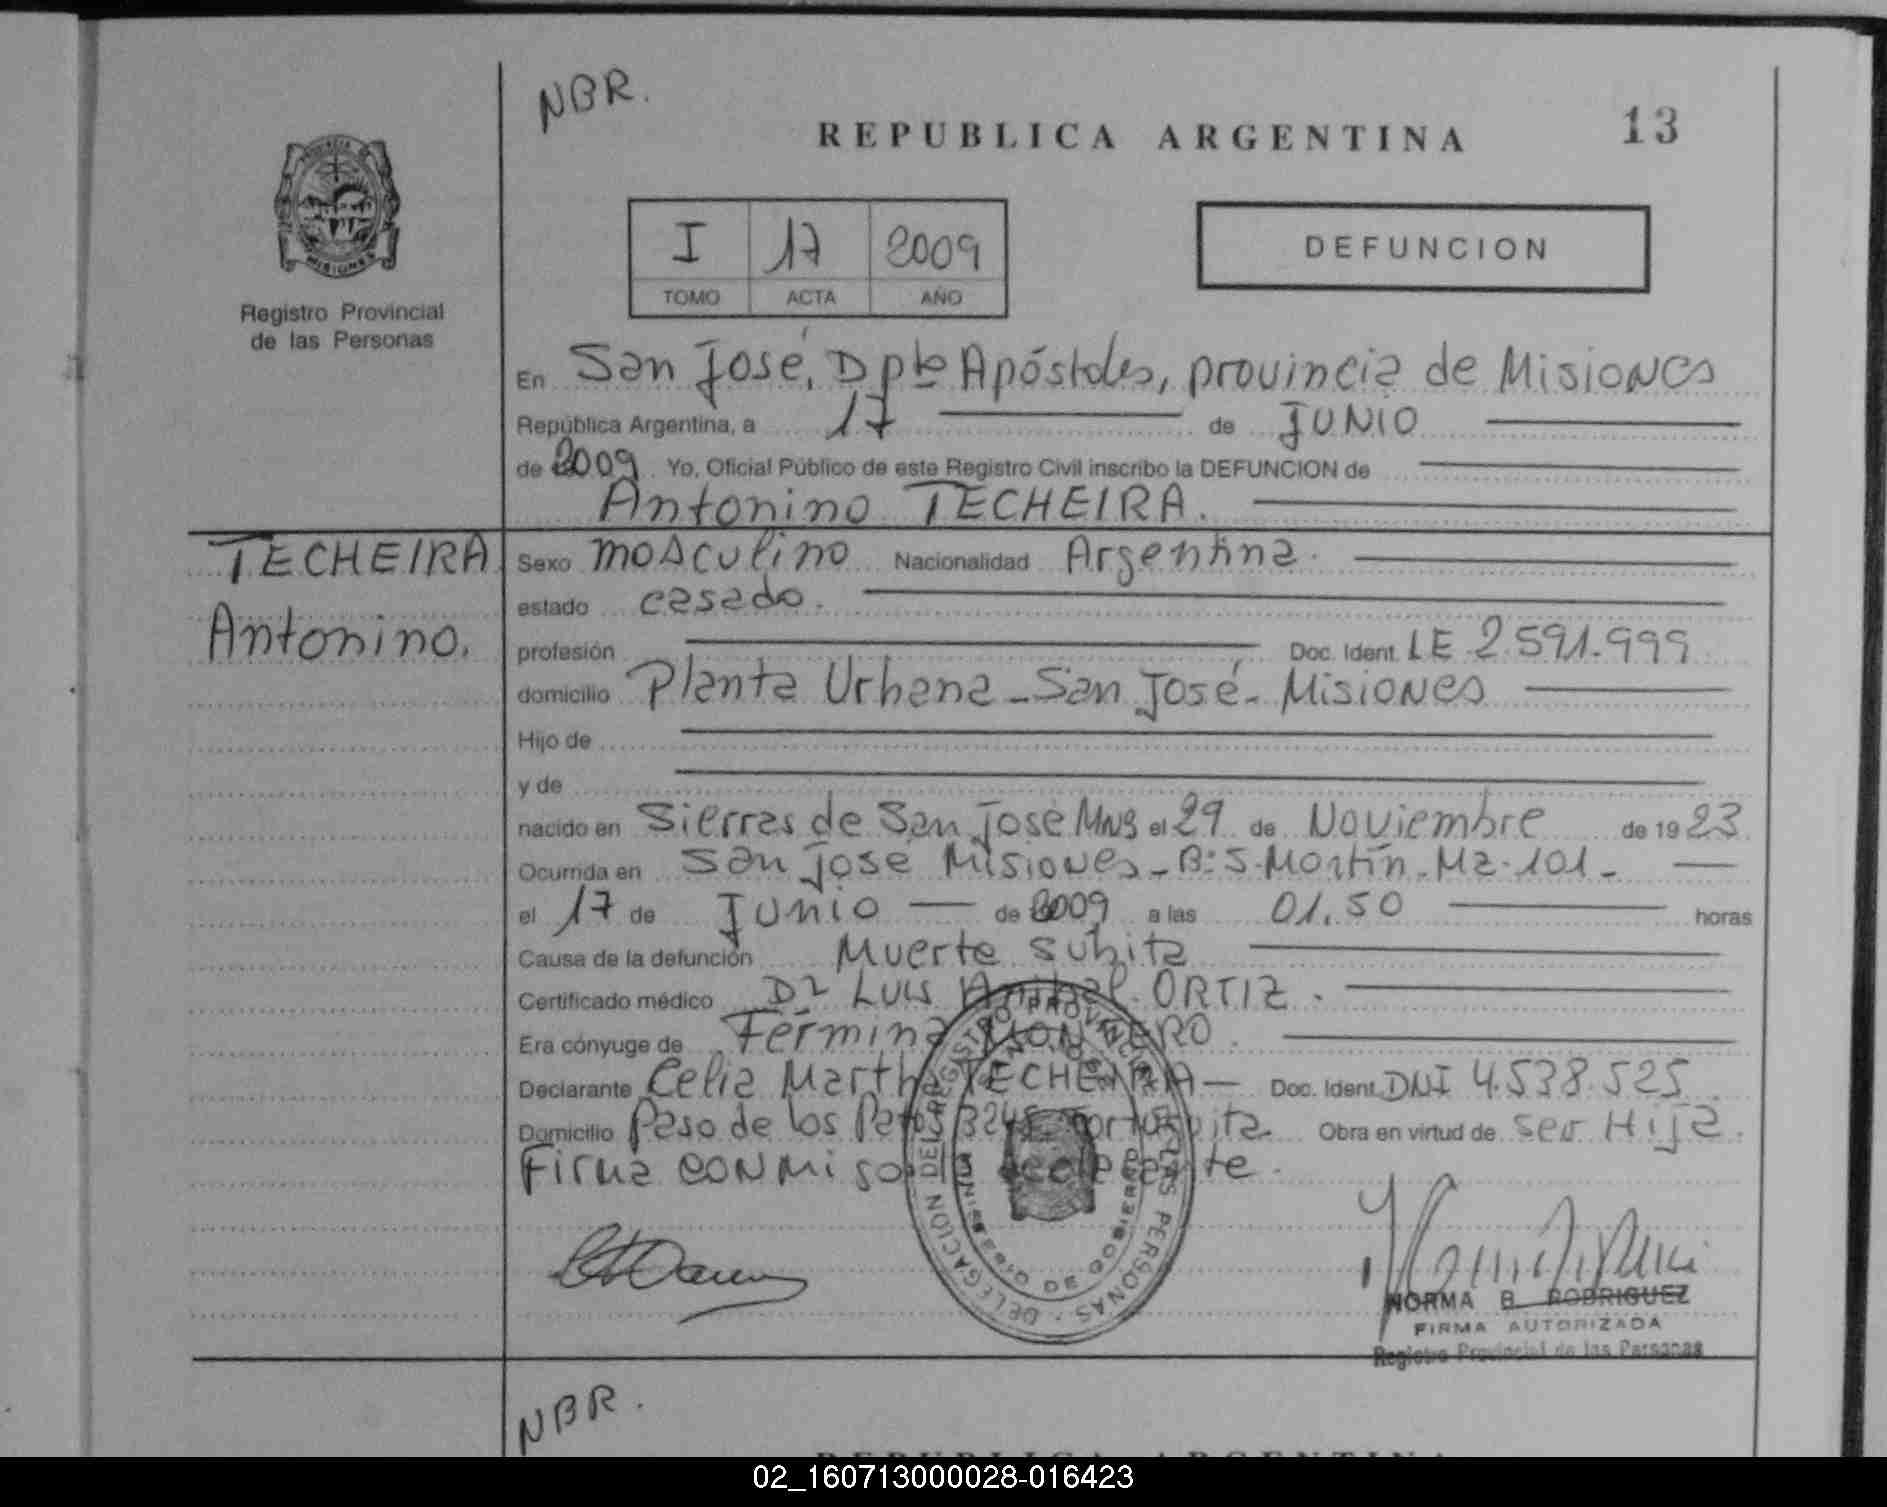 NBR.
REPUBLICA ARGENTINA
13
PROVINCIA
MISIONES
Registro Provincial
de las Personas
I 17 2009
TOMO ACTA AÑO
DEFUNCION
En San José, Dpto Apóstoles, provincia de Misiones
República Argentina, a 17 de JUNIO
de 2009 Yo, Oficial Público de este Registro Civil inscribo la DEFUNCION de
Antonino TECHEIRA.
TECHEIRA
Antonino.
Sexo masculino Nacionalidad Argentina.
estado casado.
profesión Doc. Ident. LE 2.591.999
domicilio Planta Urbana - San José - Misiones
Hijo de
y de
nacido en Sierras de San José Mns el 29 de Noviembre de 1923
Ocurrida en San José Misiones - B: S. Martín - Mz - 101 -
el 17 de Junio de 2009 a las 01.50 horas
Causa de la defunción Muerte subita
Certificado médico Dr Luis Anibal ORTIZ.
Era cónyuge de Fermina MONTERO.
Declarante Celia Martha TECHEIRA Doc. Ident. DNI 4.538.525
Domicilio Paso de los Patos 3245 Tortuguita Obra en virtud de ser Hija.
Firma conmigo la declarante.
DELEGACION DEL REGISTRO PROVINCIAL DE LAS PERSONAS
SAN JOSE
NORMA B. RODRIGUEZ
FIRMA AUTORIZADA
Registro Provincial de las Personas
NBR.
REPUBLICA ARGENTINA
02_160713000028-016423